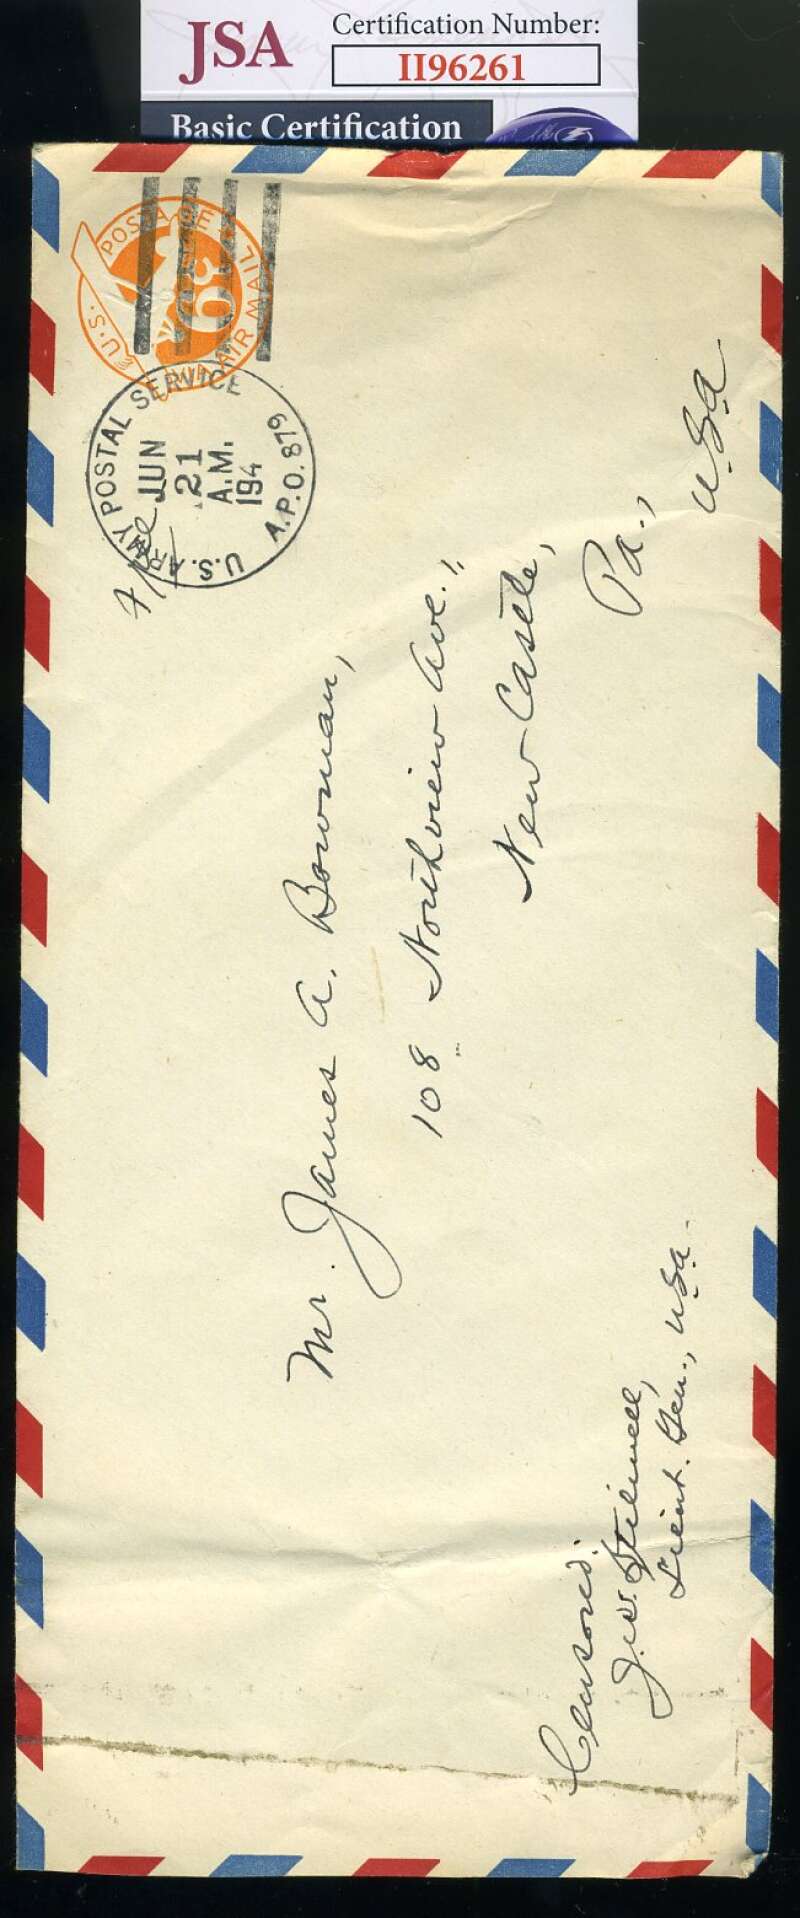 JSA
Certification Number:
II96261
Basic Certification
U.S. POSTAGE
6¢
VIA AIR MAIL
U.S. ARMY POSTAL SERVICE
JUN
21
A.M.
194
A.P.O. 879
Free
Mr. James A. Bowman,
108 Northview Ave.,
New Castle,
Pa.,
USA
Censored.
J.W. Stilwell,
Lieut. Gen., USA.